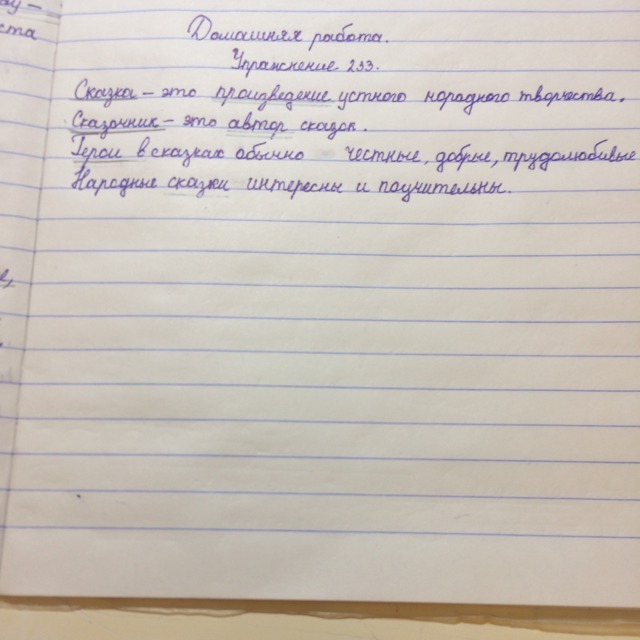 Домашняя работа.
Упражнение 233.
Сказка – это произведение устного народного творчества.
Сказочник – это автор сказок.
Герои в сказках обычно честные, добрые, трудолюбивые.
Народные сказки интересны и поучительны.